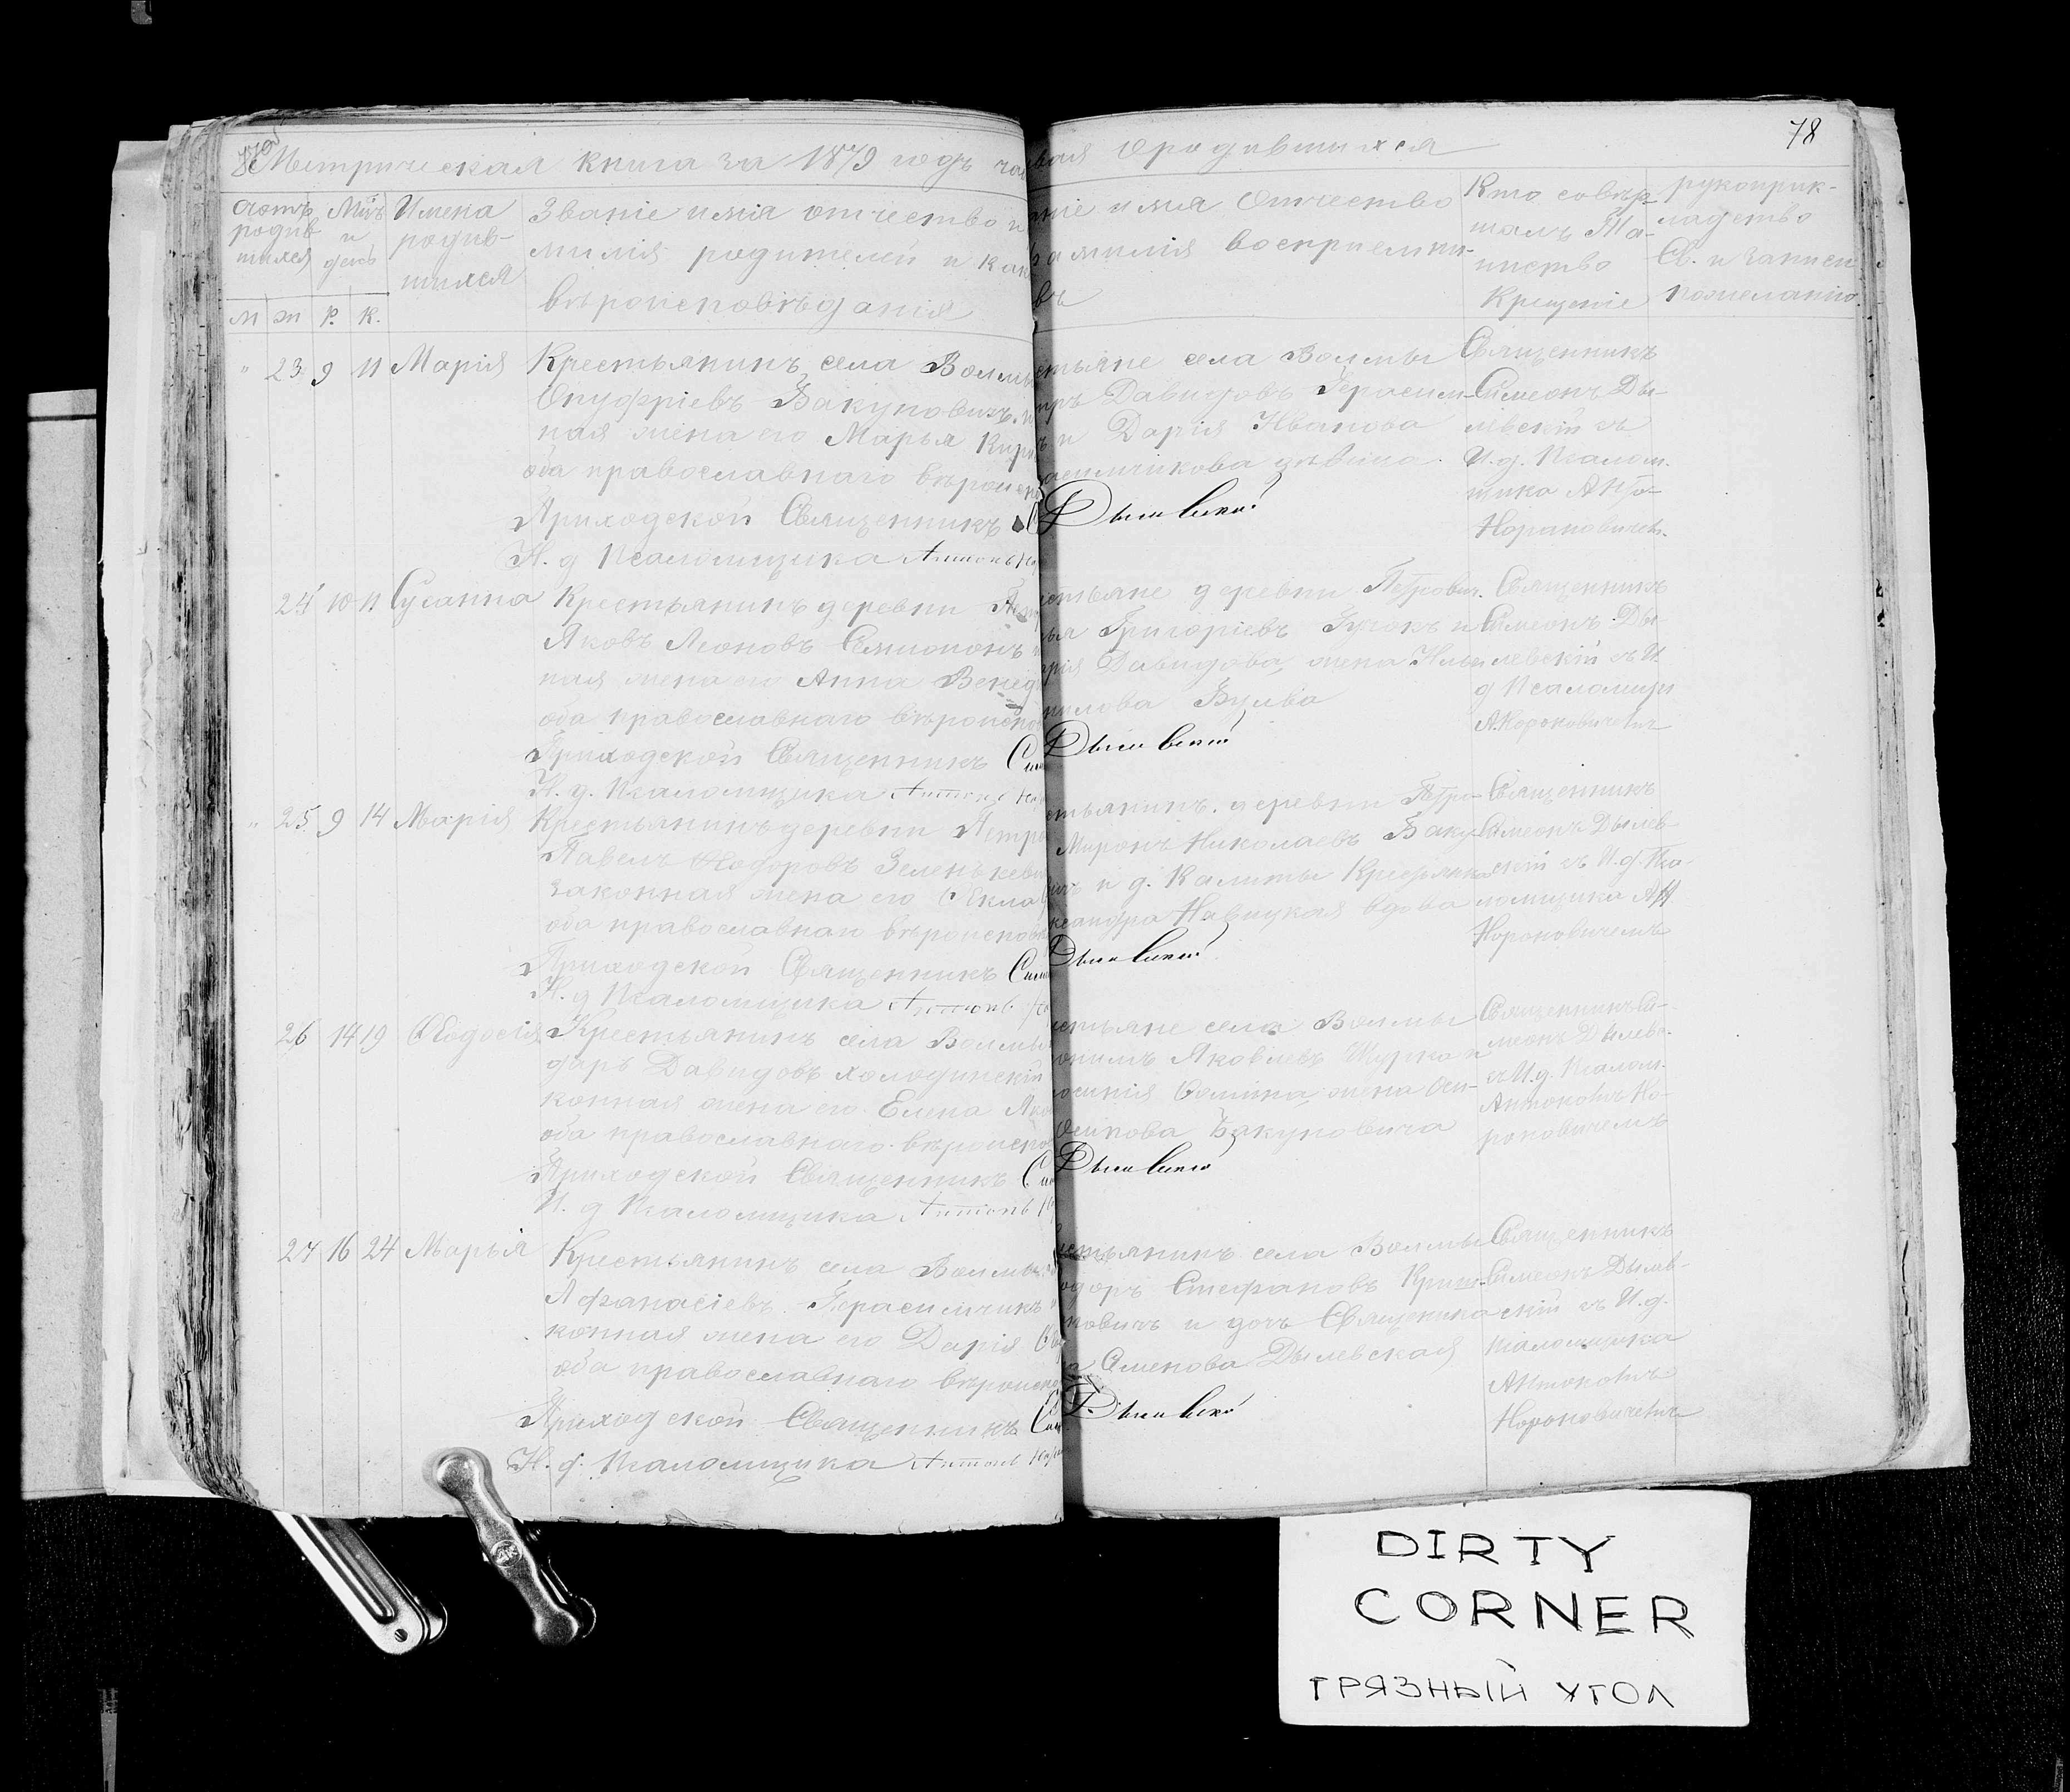 78
Метрическая книга за 1879 годъ ча
вая о родившихся
родив
шихся
Мѣсъ
и
день
Имена
родив-
шихся
Званіе имя отчество и
милія родителей и как
вѣроисповѣданія
ніе имя отчество
амилія восприемни-
въ
Кто совер-
шалъ Та-
инство
Крещенія
рукоприк-
ладство
Св. и записи
по желанію
м ж р. к.
" 23 9 11 Марія Крестьянинъ села Волмы
Онуфріевъ Бакуновичъ
ная жена его Марья Кири
оба православнаго вѣроиспо
Приходской Священникъ
И. д Псаломщика Антонъ
стьяне села Волмы
Давидовъ Герасим-
и Дарія Иванова
девица
Дылевскій
Священникъ
Симеонъ Ды-
левскій съ
И. д. Псалом-
щика
24 10 11 Сусанна Крестьянинъ деревни Петр
Яковъ Леоновъ
ная жена его Анна Венед
оба православнаго вѣроиспо
Приходской Священникъ Сим
И. д. Псаломщика Антонъ
стьяне деревни Петрович.
Григоріевъ и
рія Давидова, жена Ильи
Дылевскій
Священникъ
Симеонъ Ды-
левскій съ И
д Псаломщи
" 25 9 14 Марія Крестьянинъ деревни Петро
Павелъ Ѳеодоровъ Зеленкеви
законная жена его Ѳекла
оба православнаго вѣроисповѣ
Приходской Священникъ Сим
И. д Псаломщика Антонъ
стьянинъ деревни Петро-
Миронъ Николаевъ Баку-
ичъ и д. Калиты Крестьянка
ксандра Навицкая вдова
Дылевскій
Священникъ
Симеонъ Дылев-
скій съ И. д. Пса-
ломщика
26 14 19 Ѳеодосія Крестьянинъ села Волмы
Давидовъ Холодинскій
конная жена его Елена Яко
оба православнаго вѣроиспо
Приходской Священникъ Си
И. д Псаломщика Антонъ
стьяне села Волмы
Яковлевъ Шурка и
жена Оси-
Осипова Бакуновича
Дылевскій
Священникъ Си-
меонъ Дылевс.
съ И. д. Псалом.
27 16 24 Марья Крестьянинъ села Волмы
Афанасіевъ Герасимчикъ
конная жена его Дарія
оба православнаго вѣроиспо
Приходской Священникъ Сим
И. д. Псаломщика Антонъ
стьянинъ села Волмы
одоръ Стефановъ Криш-
новичъ и дочь Священника
Семенова Дылевская
Дылевскій
Священникъ
Симеонъ Дылев-
скій съ И. д.
псаломщика
DIRTY
CORNER
ГРЯЗНЫЙ УГОЛ